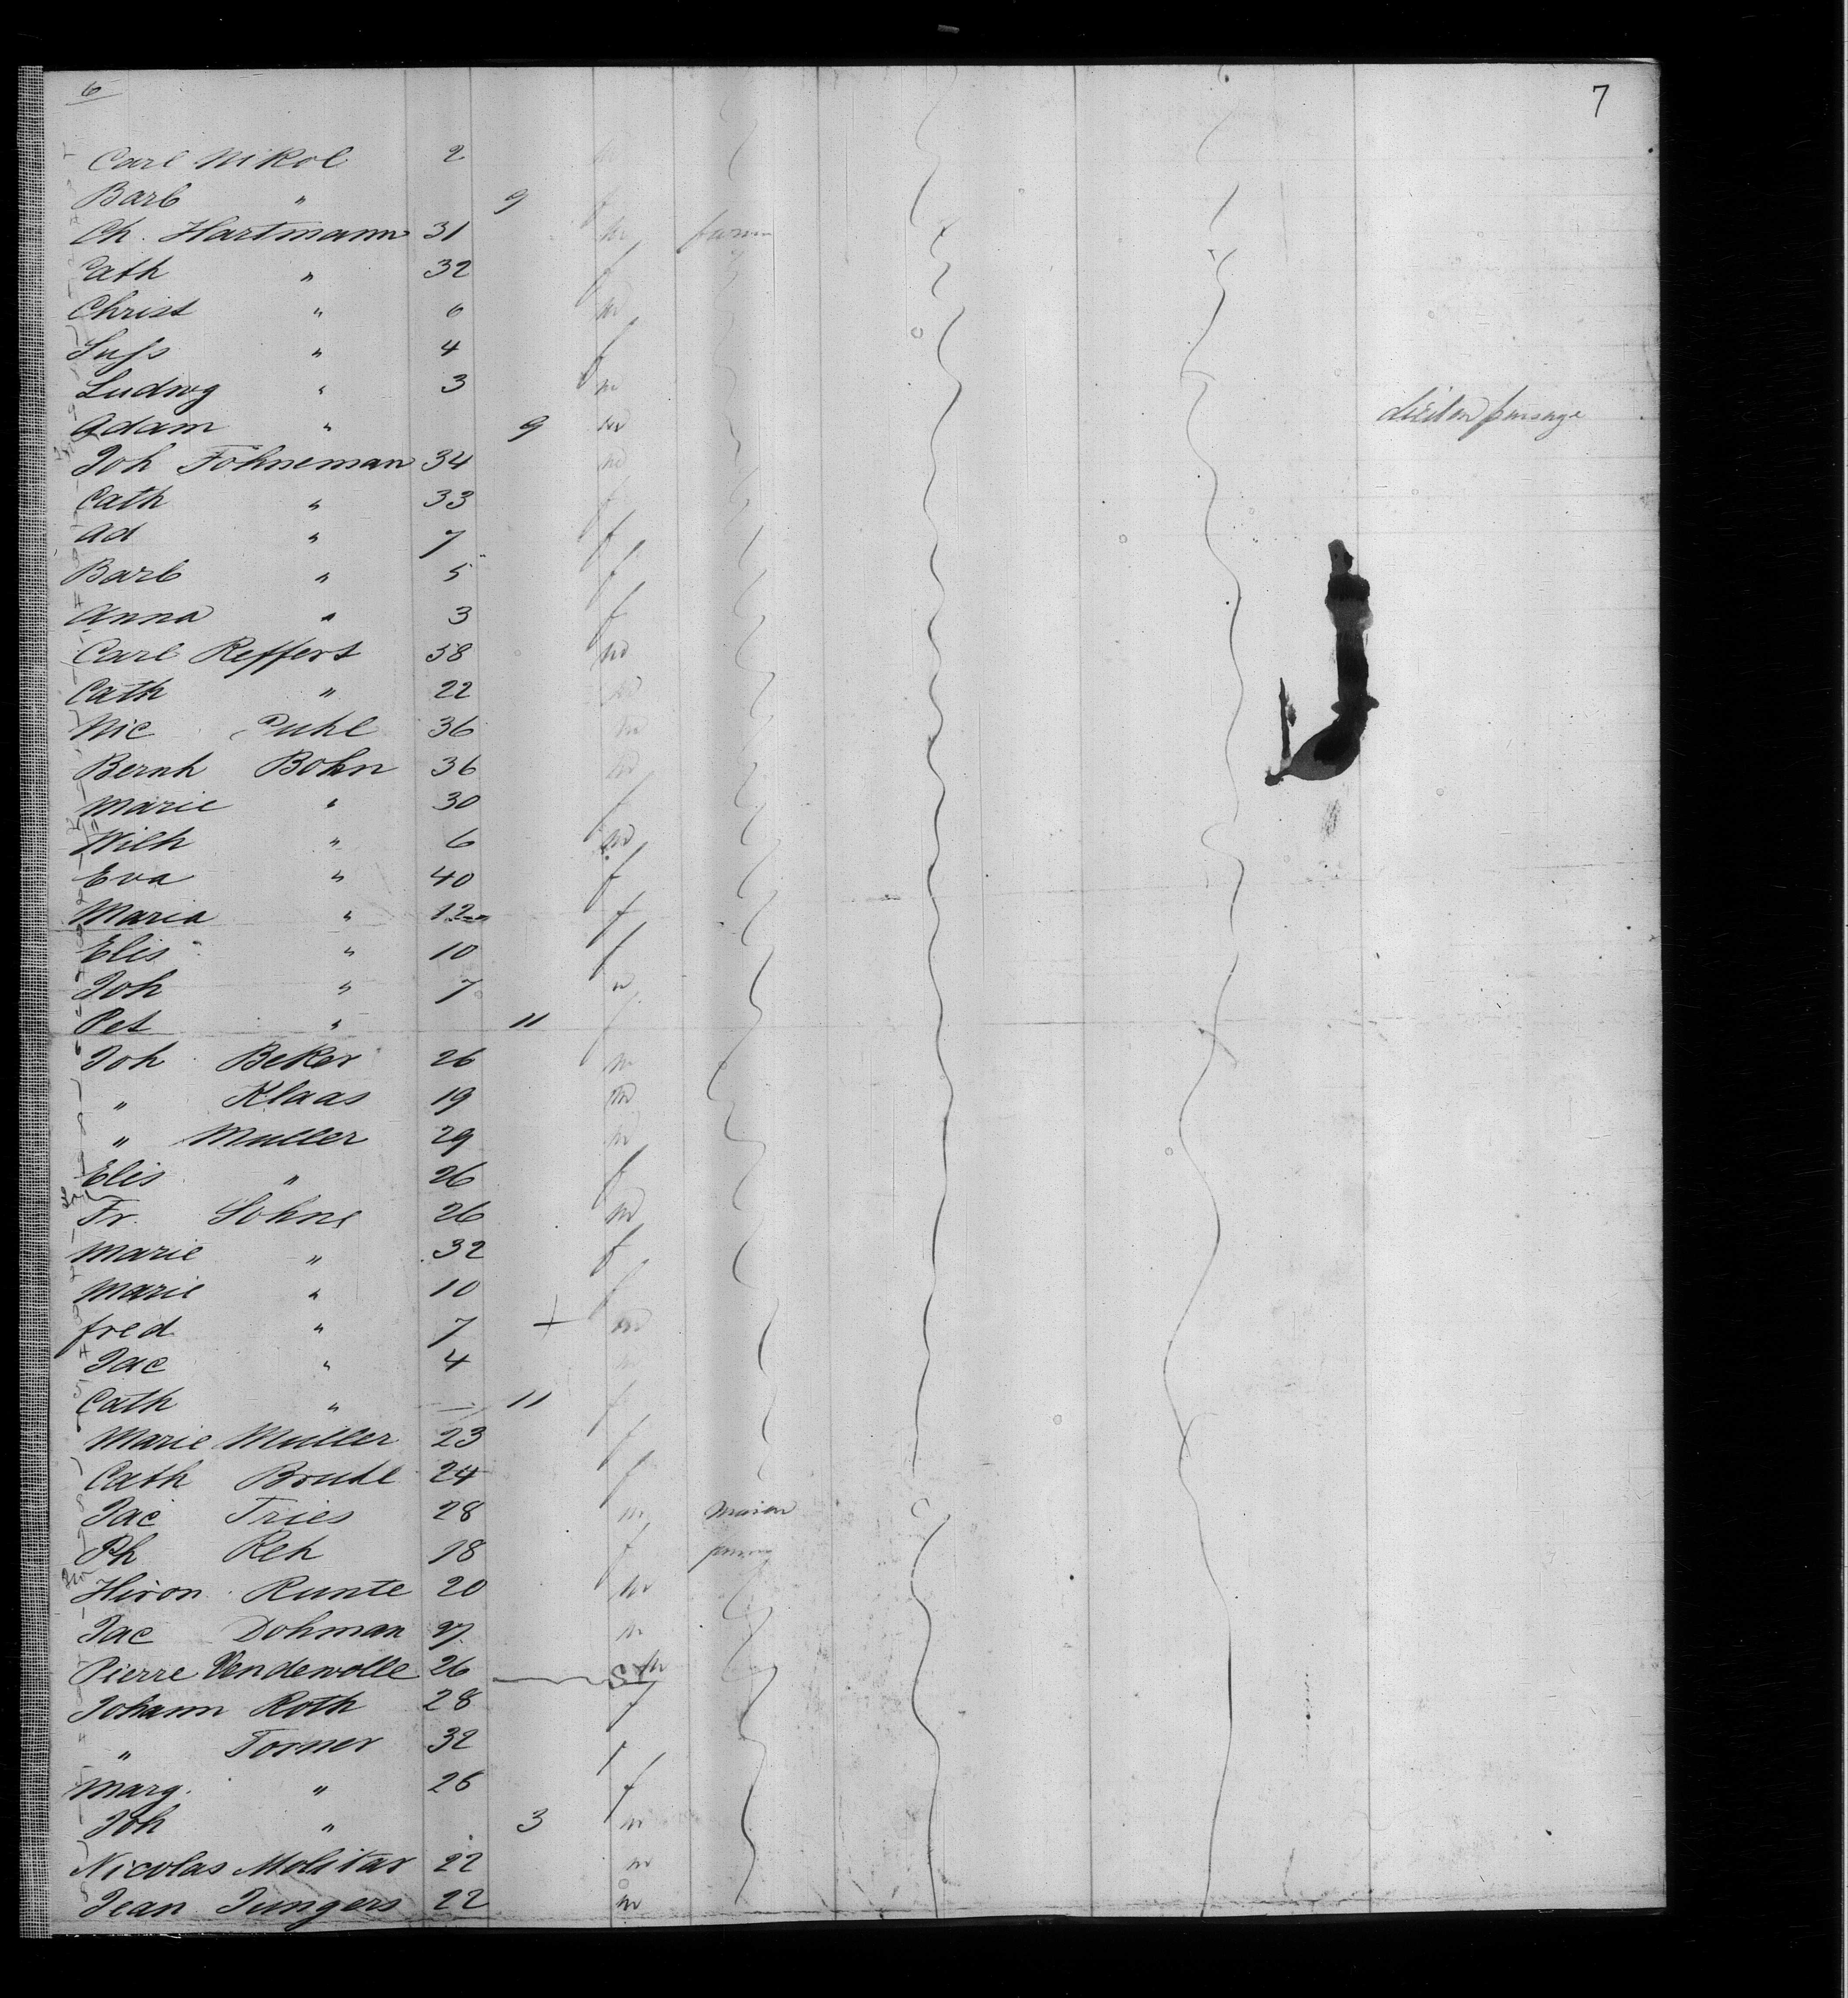 6
7
Carl Nikol 2 m
Barb " 9 f
Ch. Hartmann 31 m farmer
Cath " 32 f
Christ " 6 m
" 4 f
Ludwg " 3 m
Adam " 9 m died on passage
Joh Fohneman 34 m
Cath " 33 f
Ad " 7 f
Barb " 5 f
Anna " 3 f
Carl Reffert 38 m
Cath " 22 m
Nic Puhl 36 m
Bernh Bohn 36 m
Marie " 30 f
Wilh " 6 m
Eva " 40 f
Maria " 12 f
Elis " 10 f
Joh " 7 m
Pet " 11 f
Joh Beker 26 m
" Klaas 19 m
" Muller 29 m
Elis " 26 f
Fr. Sohns 26 m
Marie " 32 f
Marie " 10 f
fred " 7 + m
Jac " 4 m
Cath " — 11 f
Marie Muller 23 f
Cath Brutl 24 f
Jac Tries 28 m mason
Ph Reh 18 f
Hiron Runte 20 m
Jac Dohman 27 m
Pierre Vendewolle 26 m
Johann Roth 28 f
" Torner 32 f
Marg. " 26 f
Joh " 3 m
Nicolas Molitar 22 m
Jean Jungers 22 m